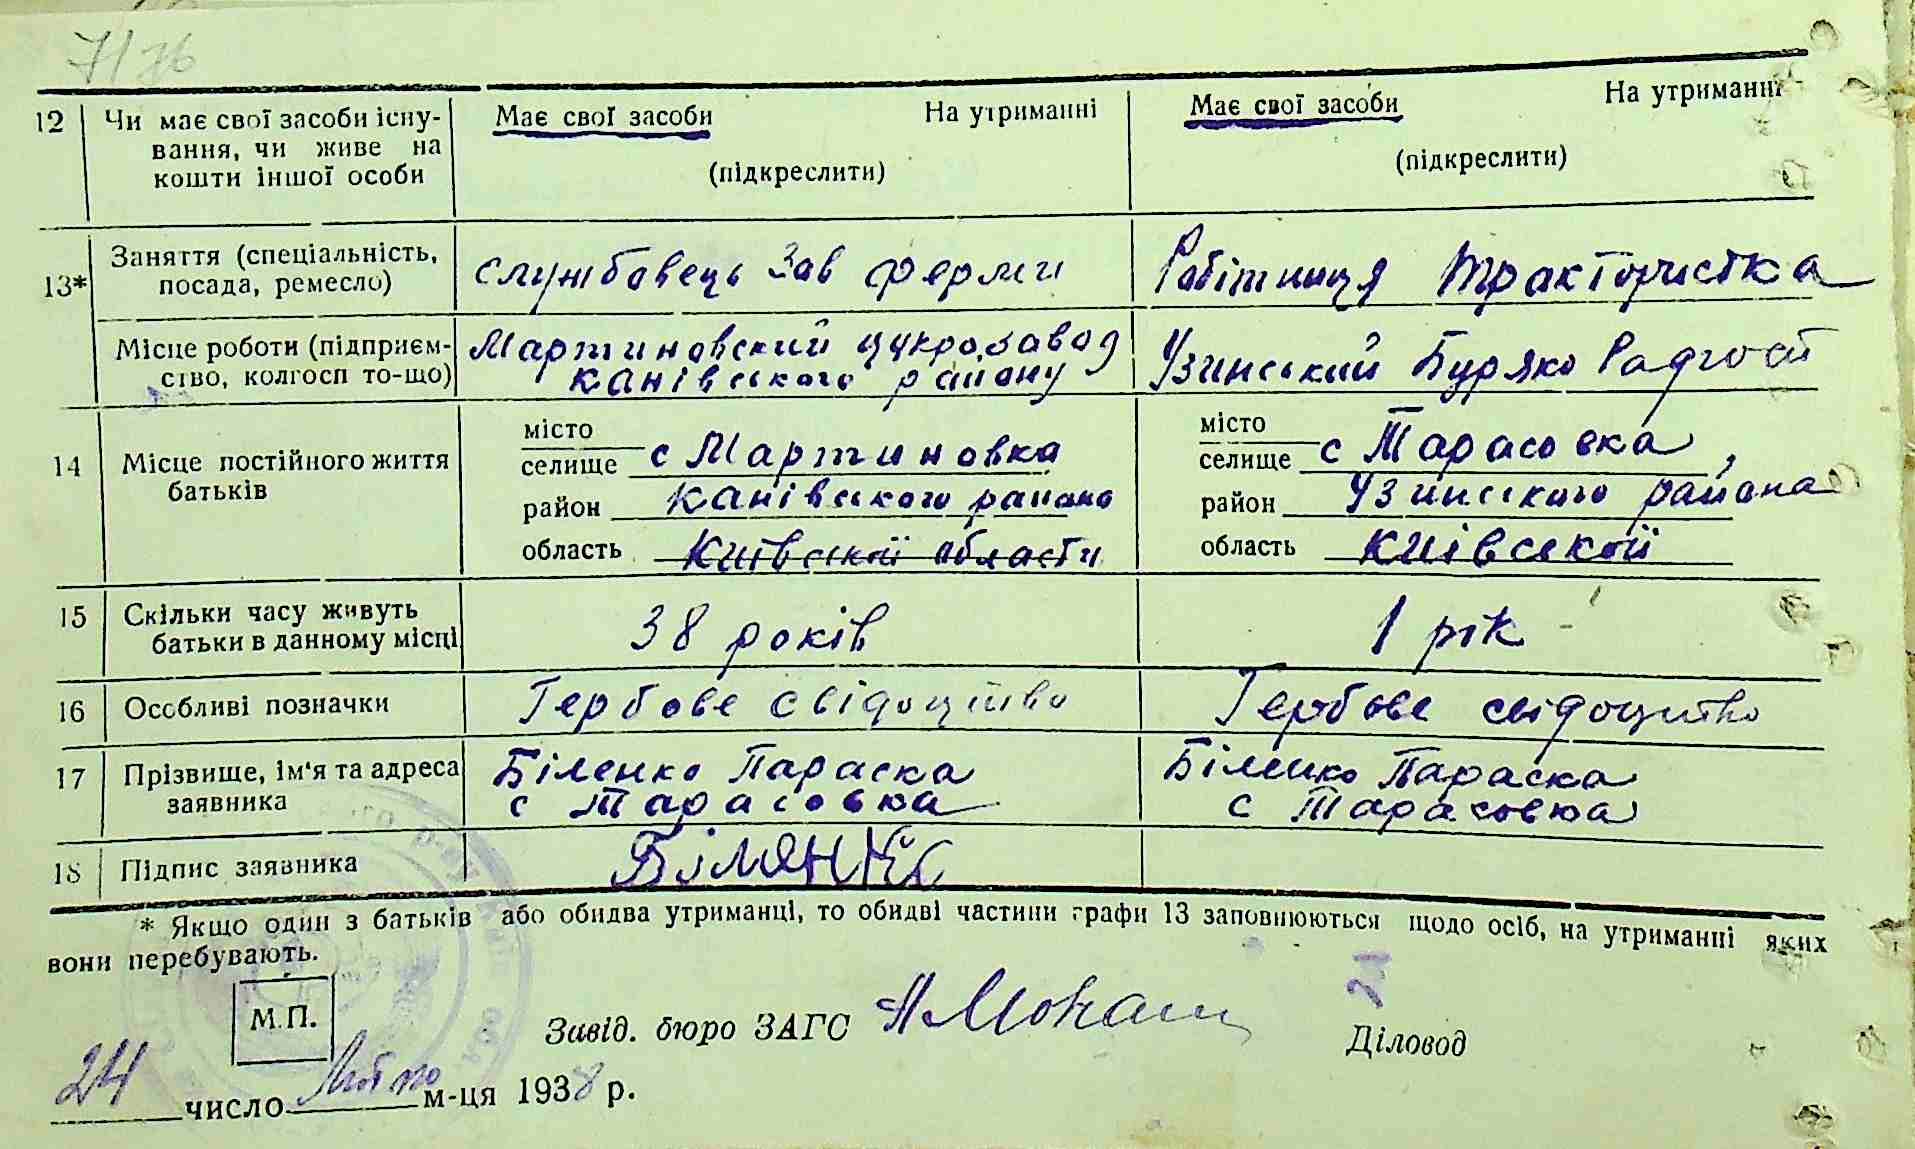 71 76
12 Чи має свої засоби існу-
вання, чи живе на
кошти іншої особи
Має свої засоби На утриманні
(підкреслити)
Має свої засоби На утриманні
(підкреслити)
13* Заняття (спеціальність,
посада, ремесло)
службавець Зав ферми
Робітниця трактористка
Місце роботи (підприєм-
ство, колгосп то-що)
Мартиновский цукрозавод
Канівського району
Узинський Буряко Радгосп
14 Місце постійного життя
батьків
місто
селище с Мартиновка
район Канівського района
область Київской области
місто
селище с Тарасовка,
район Узинського района
область Київской
15 Скільки часу живуть
батьки в данному місці
38 років
1 рік
16 Особливі позначки
Гербове свідоцтво
Гербове свідоцтво
17 Прізвище, ім'я та адреса
заявника
Біленко Параска
с Тарасовка
Біленко Параска
с Тарасовка
18 Підпис заявника
* Якщо один з батьків або обидва утриманці, то обидві частини графи 13 заповнюються щодо осіб, на утриманні яких
вони перебувають.
М.П.
Завід. бюро ЗАГС
Діловод
24 число м-ця 1938 р.